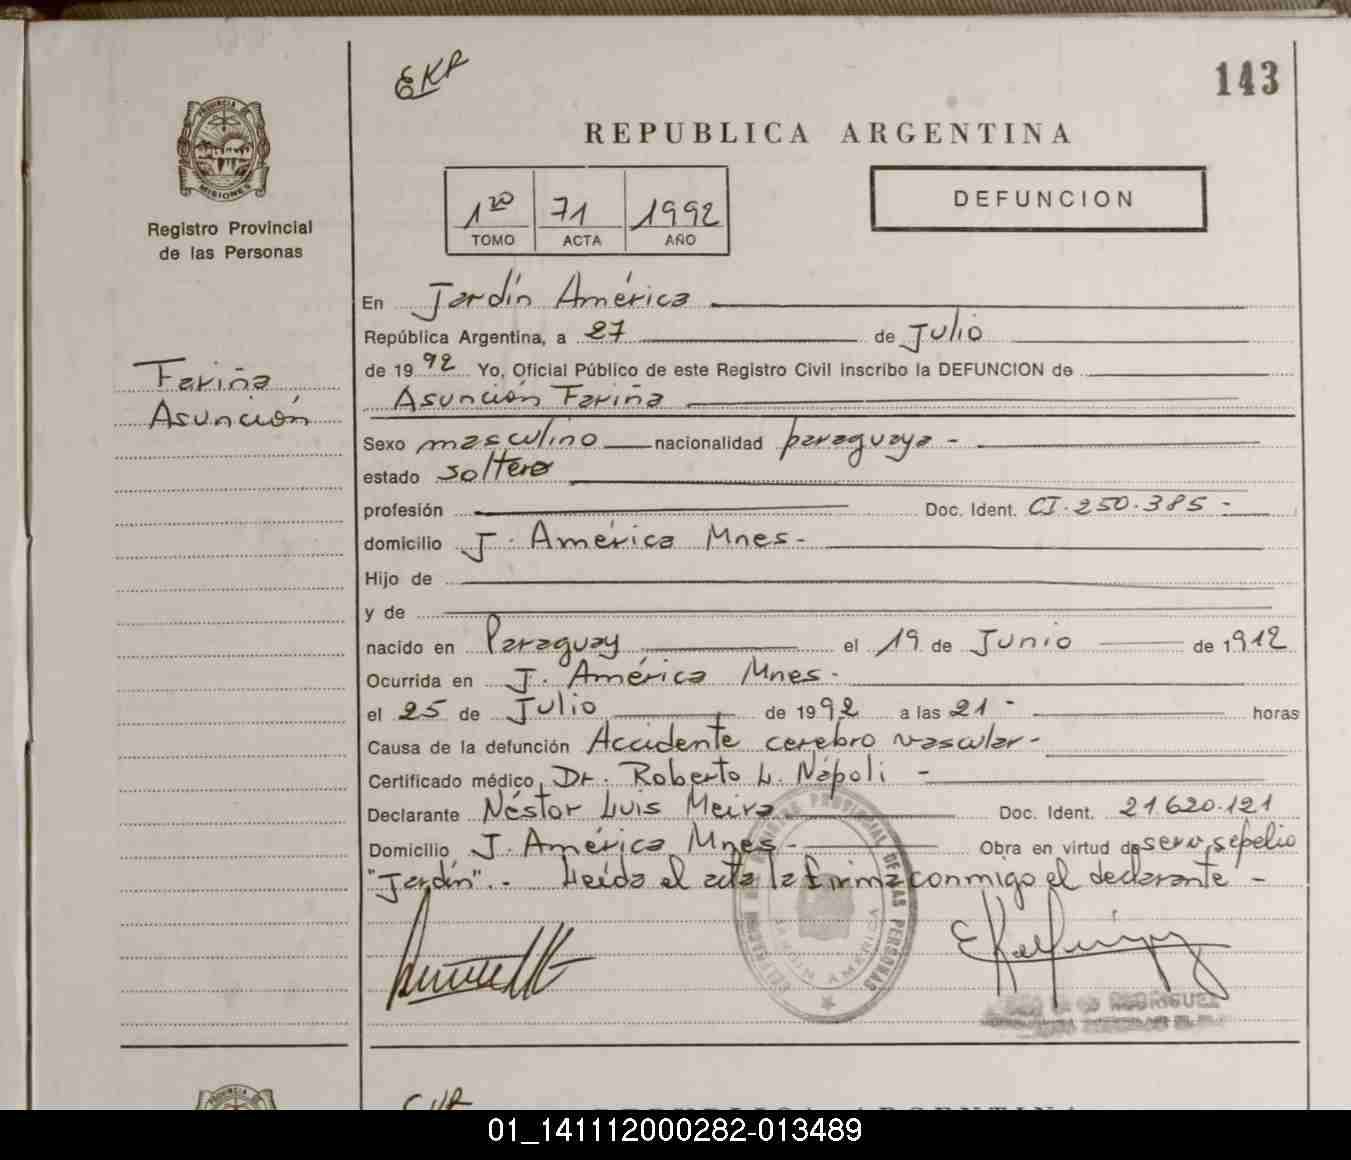 EKR
143
REPUBLICA ARGENTINA
PROVINCIA DE
MISIONES
Registro Provincial
de las Personas
1ro 71 1992
TOMO ACTA AÑO
DEFUNCION
Fariña
Asunción
En Jardín América
República Argentina, a 27 de Julio
de 1992 Yo, Oficial Público de este Registro Civil inscribo la DEFUNCION de
Asunción Fariña
Sexo masculino nacionalidad paraguaya -
estado soltero
profesión Doc. Ident. CI. 250.385 -
domicilio J. América Mnes -
Hijo de
y de
nacido en Paraguay el 19 de Junio de 1912
Ocurrida en J. América Mnes -
el 25 de Julio de 1992 a las 21 - horas
Causa de la defunción Accidente cerebro vascular -
Certificado médico Dr. Roberto L. Nápoli -
Declarante Néstor Luis Meira Doc. Ident. 21.620.121
Domicilio J. América Mnes - Obra en virtud de serv. sepelio
"Jardín". - Leída el acta la firma conmigo el declarante -
PROVINCIAL DE LAS PERSONAS
JARDIN AMERICA
RODRIGUEZ
PROVINCIA DE
REPUBLICA ARGENTINA
01_141112000282-013489